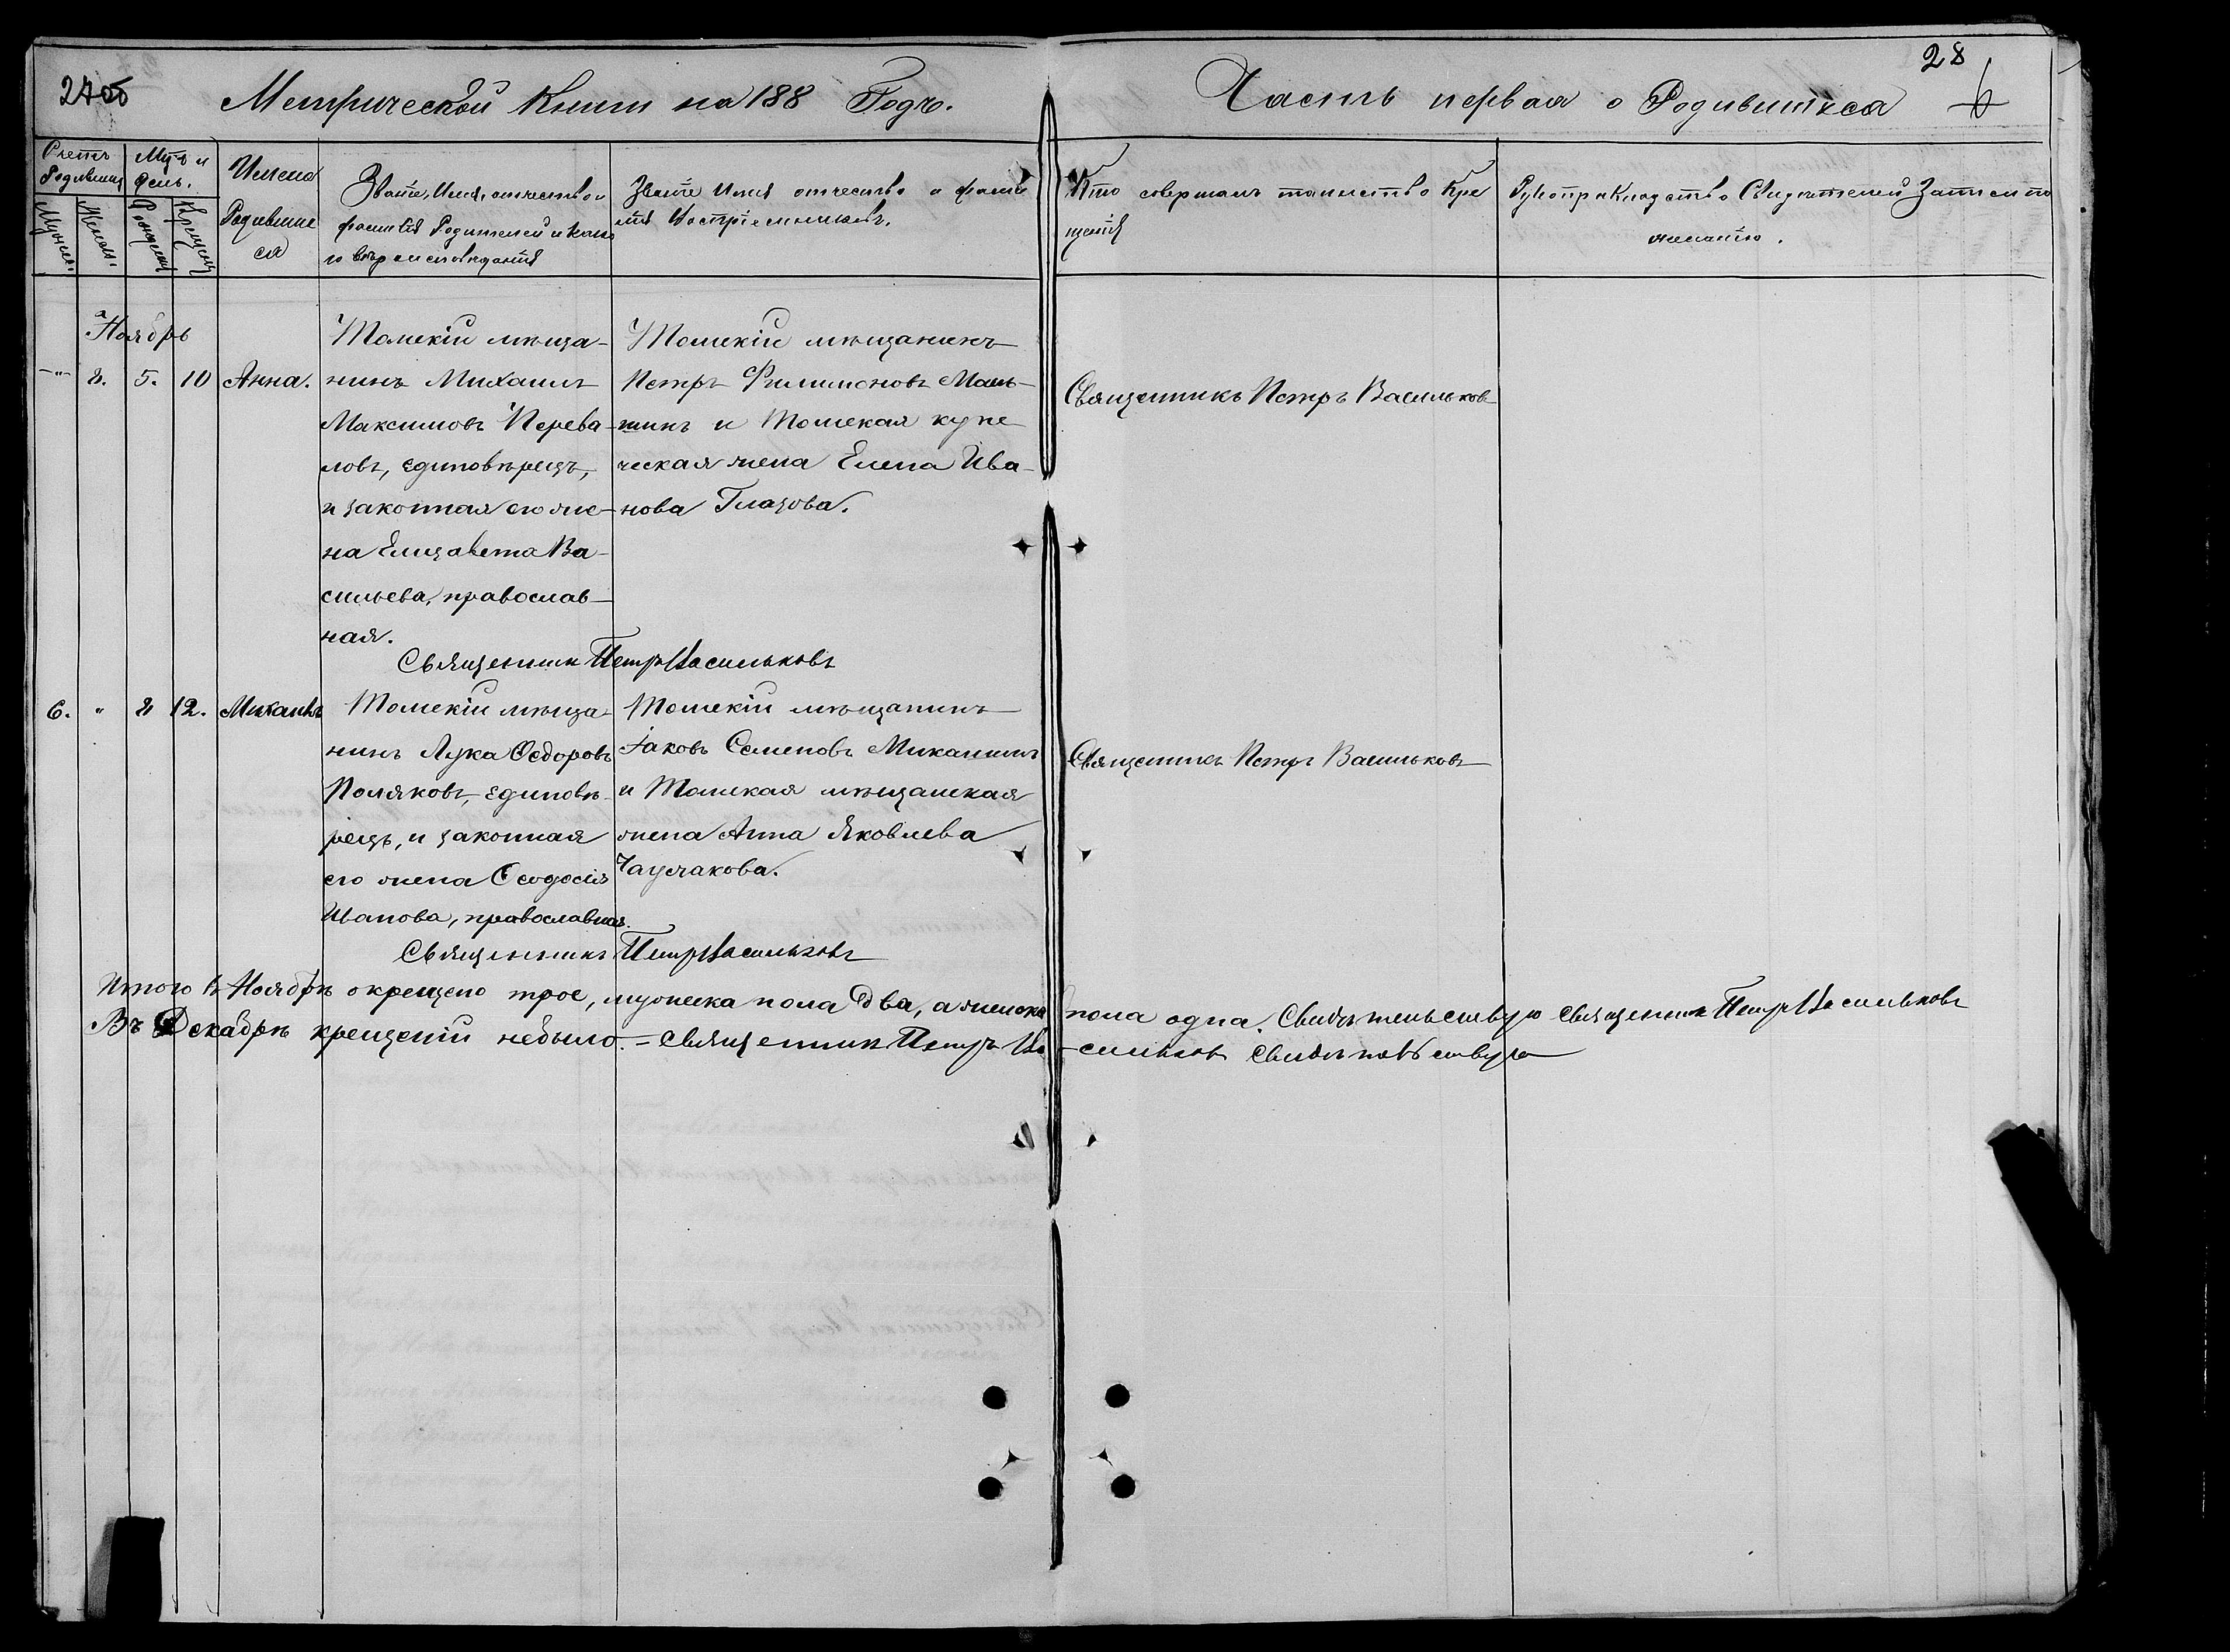 27об
28
Метрической Книги на 188 Годъ.
Часть первая о Родившихся
Счетъ Родившихся
Мужеск.
Женск.
Мѣс. и день.
Рожденія
Крещенія
Имена
Родивших
ся
Званіе, Имя, отчество и
фамилія Родителей и како
го вѣроисповѣданія
Званіе Имя отчество и фами
лія Воспріемниковъ.
Кто совершалъ таинство Кре
щенія
Рукоприкладство Свидѣтелей Записи по
желанію.
Ноябрь
-"- 8. 5. 10 Анна.
Томскій мѣща-
нинъ Михаилъ
Максимовъ Перева-
ловъ, единовѣрецъ,
и законная его же-
на Елизавета Ва-
сильева, православ-
ная.
Томскій мѣщанинъ
Петръ Филимоновъ Маль-
шинъ и Томская купе-
ческая жена Елена Ива-
нова Глазова.
Священникъ Петръ Васильков
Священник Петръ Васильковъ
6. " 8 12. Михаилъ
Томскій мѣща
нинъ Лука Ѳедоровъ
Поляковъ, единовѣ-
рецъ, и законная
его жена Ѳеодосія
Иванова, православная.
Томскій мѣщанинъ
Іаковъ Семеновъ Микаилинъ
и Томская мѣщанская
жена Анна Яковлева
Священникъ Петръ Васильковъ
Священникъ Петръ Васильковъ
Итого въ Ноябрѣ окрещено трое, мужеска пола два, а женска пола одна. Свидѣтельствую Священник Петръ Васильковъ
Въ Декабрѣ крещеній небыло. = Священник Петръ Ва-сильков свидѣтельствую